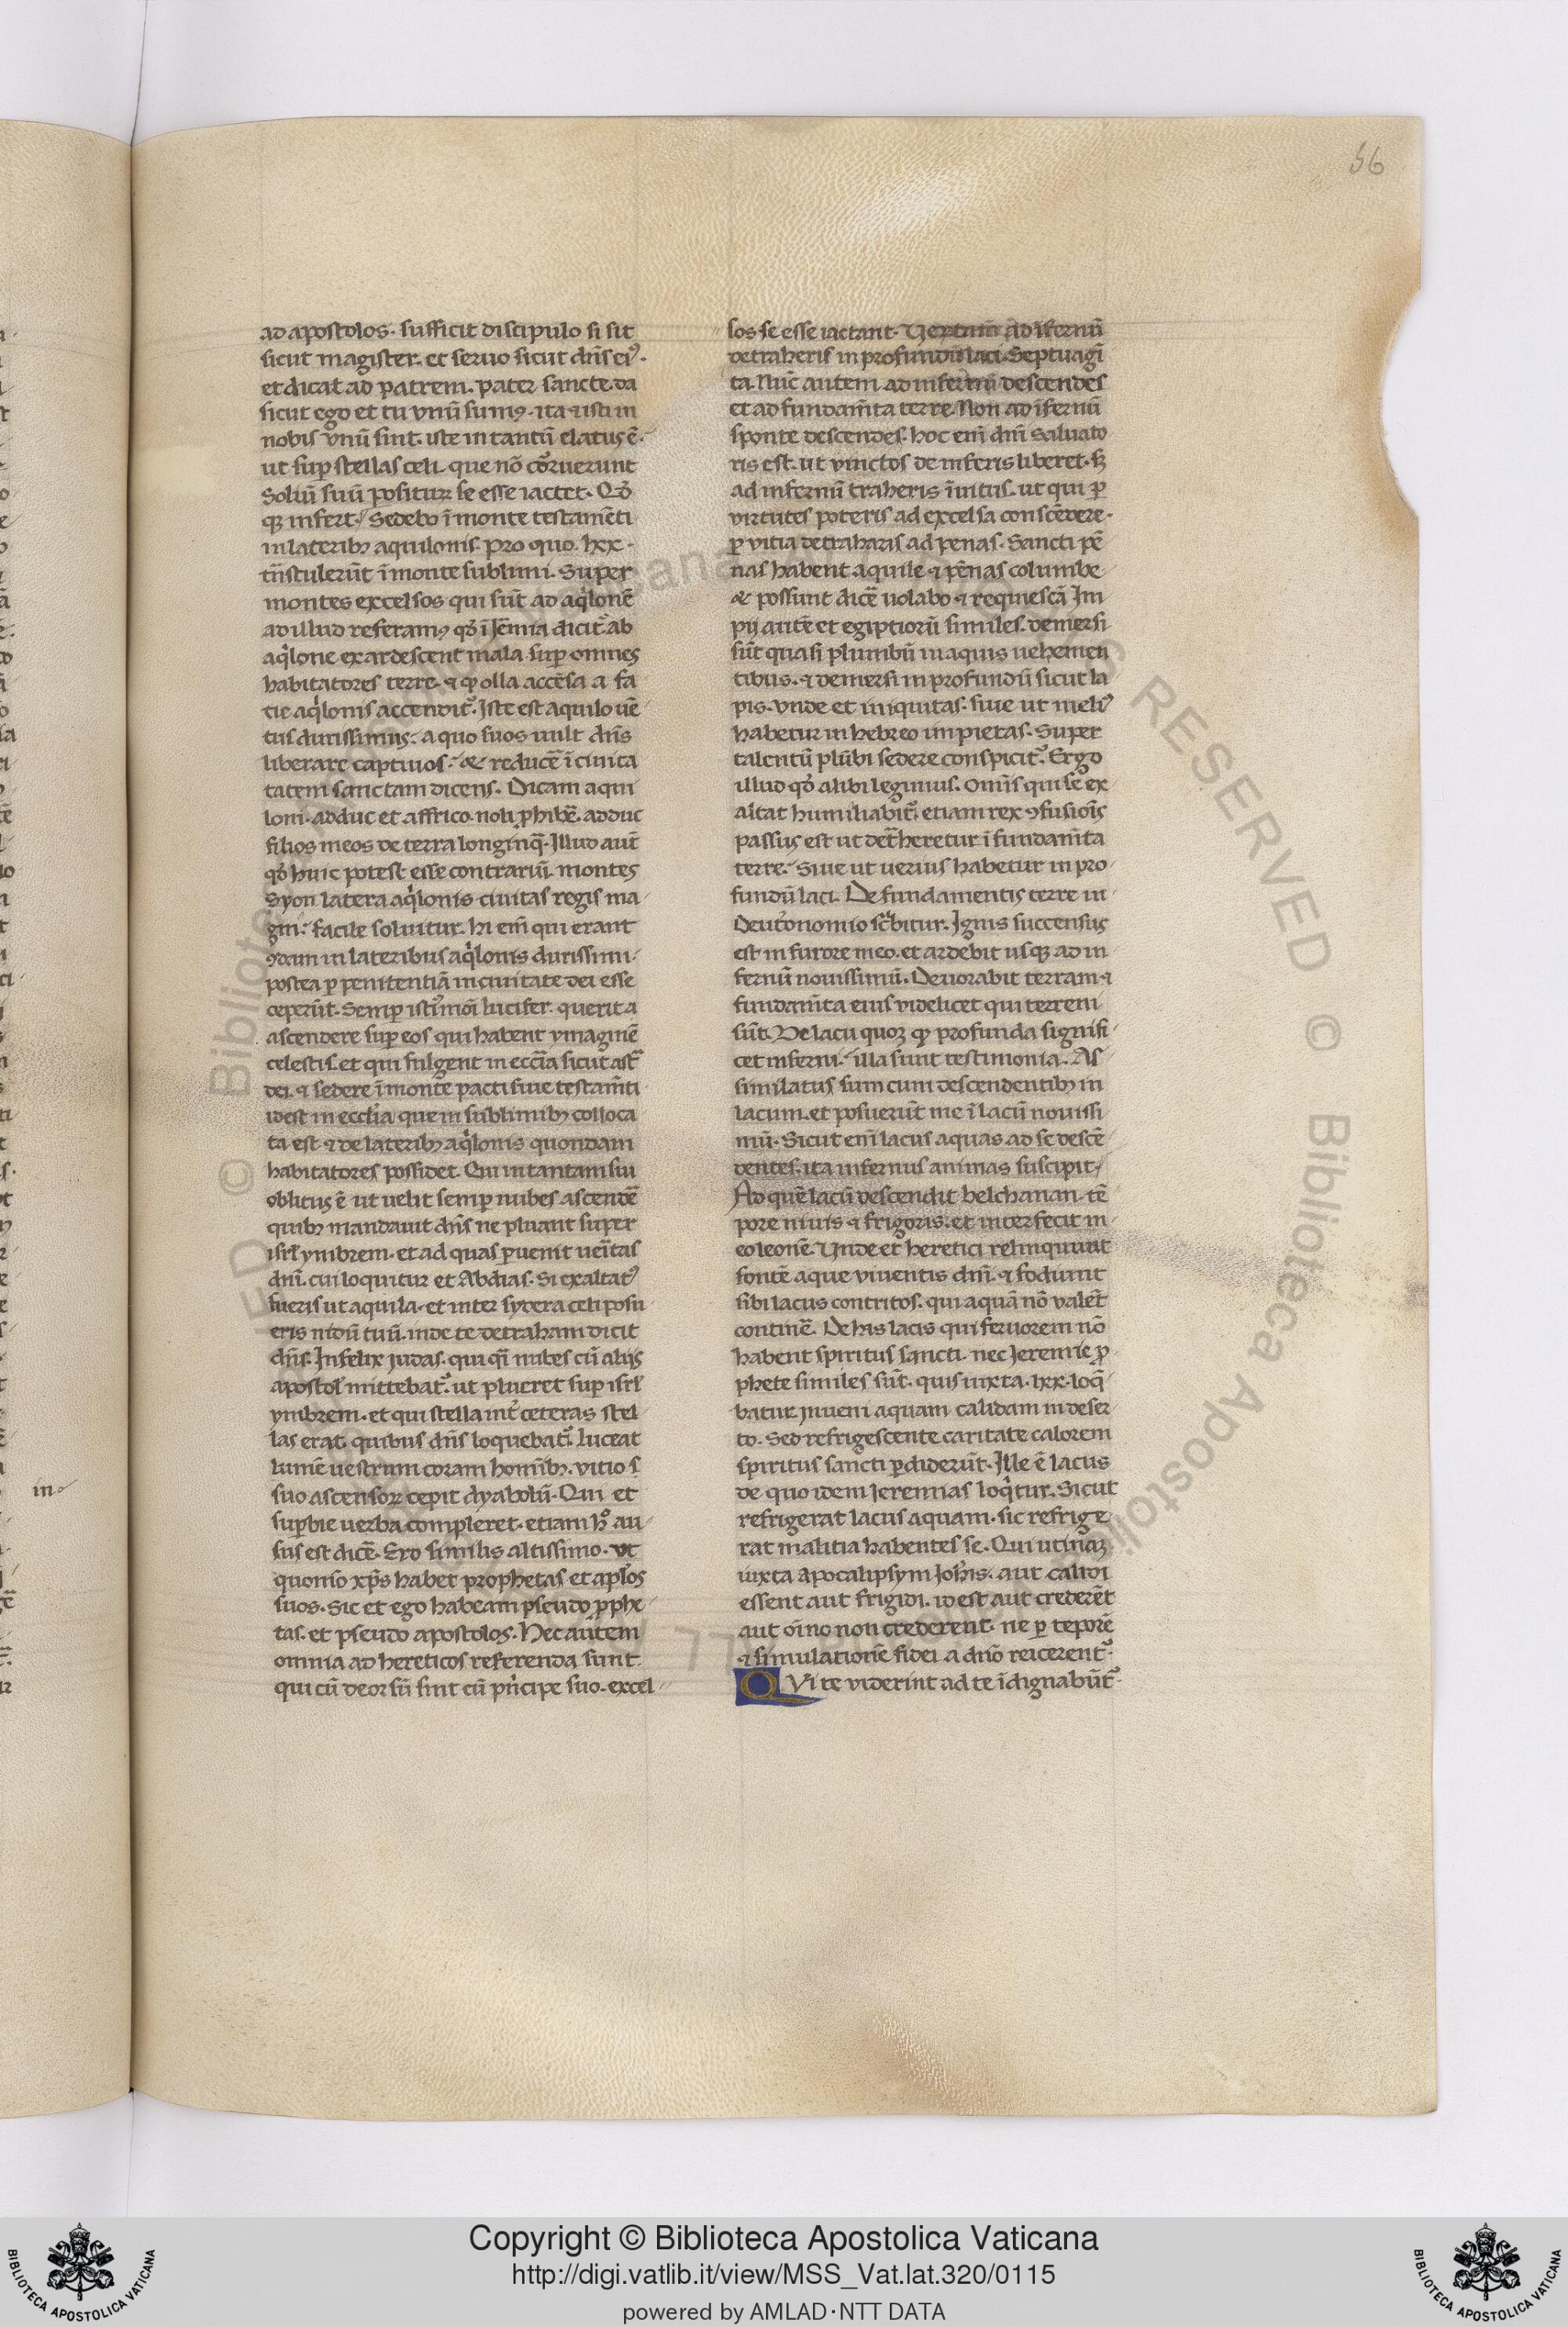 56
ad apostolos. sufficit discipulo si sit
sicut magister. et seruo sicut dn̄s ei᷒.
et dicat ad patrem. pater sancte. da
sicut ego et tu vnū sumꝰ. ita ⁊ isti in
nobis vnū sint. iste in tantū elatus ē.
ut suꝑ stellas celi. que nō cōruerunt
Soliū suū positur se esse iactet. Qd̄
qꝫ infert. Sedebo ī monte testamēti
in lateribꝫ aquilonis. pro quo. lxx.
tn̄stulerūt ī monte sublimi. Super
montes excelsos qui sūt ad aqͥlonē
ad illud referamꝰ qd̄ ī Jēmia dicit᷑ ab
aqͥlone exardescent mala suꝑ omnes
habitatores terre. ⁊ ꝙ olla accēsa a fa
cie aqͥlonis accendit᷑. Iste est aquilo uē
tus durissimus. a quo suos uult dn̄s
liberare captiuos. & reducē ī ciuita
tatem sanctam dicens. Dicam aqui
loni. adduc et affrico. noli ꝓhibē. adduc
filios meos de terra longinq̄. Illud aut̄
qd̄ huic potest esse contrariū. montes
Syon latera aqͥlonis ciuitas regis ma
gni. facile soluitur. hi em̄ qui erant
ꝯdam in lateribus aqͥlonis durissimi
postea ꝑ penitentiā in ciuitate dei esse
ceperūt. Semꝑ isti᷒mōi lucifer. querit a
ascendere suꝑ eos qui habent ymaginē
celestis. et qui fulgent in ecc̄ia sicut ast̄
dei. ⁊ sedere ī monte pacti siue testam̄ti
idest in ecc̄lia que in sublimibꝫ colloca
ta est ⁊ de lateribꝫ aqͥlonis quondam
habitatores possidet. Qui in tantam sui
oblitus ē ut uelit semꝑ nubes ascendē
quibꝫ mandauit dn̄s ne pluant super
isrl̄ ymbrem. et ad quas ꝑuenit uēitas
dn̄i. cui loquitur et Abdias. Si exaltat᷒
fueris ut aquila. et inter sydera celi posu
eris nidū tuū. inde te detraham dicit
dn̄s. Infelix judas. qui qͣi nubes cū alijs
apostol̄ mittebat᷑. ut plueret suꝑ isrl̄
ymbrem. et qui stella int̄ ceteras stel
las erat. quibus dn̄s loquebat᷑. luceat
lumē uestrum coram homībꝫ. vitio s
suo ascensorꝫ cepit dyabolū. Qui et
suꝑbie uerba compleret. etiam h᷒ au
sus est dicē. Ero similis altissimo. ut
quomō xp̄s habet prophetas et apl̄os
suos. Sic et ego habeam pseudo ꝓphe
tas. et pseudo apostolos. Hec autem
omnia ad hereticos referenda sunt.
qui cū deorsū sint cū pͥncipe suo. excel
sos se esse iactant. Verūtam̄ ad īfernū
detraheris in profundū laci. Septuagī
ta. Nūc autem ad infernū descendes
et ad fundam̄ta terre. Non ad īfernū
sponte descendes. hoc em̄ dn̄i Saluato
ris est. ut vinctos de inferis liberet. sꝫ
ad infernū traheris īuitus. ut qui ꝑ
virtutes poteris ad excelsa conscēdere.
ꝑ vitia detraharis ad penas. Sancti pē
nas habent aquile ⁊ pēnas columbe
& possunt dicē uolabo ⁊ requiescā Im
pij autē et egiptiorū similes. demersi
sūt quasi plumbū in aquis uehemen
tibus. ⁊ demersi in profundū sicut la
pis. vnde et iniquitas. siue ut meli᷒
habetur in hebreo impietas. Super
talentū plūbi sedere conspicit᷑. Ergo
illud qd̄ alibi legimus. Omīs qui se ex
altat humiliabit᷑. etiam rex ꝯfusiōis
passus est ut det̄heretur ī fundam̄ta
terre. Siue ut uerius habetur in pro
fundū laci. De fundamentis terre in
Deut̄onomio scͥbitur. Ignis succensus
est in furore meo. et ardebit usqꝫ ad in
fernū nouissimū. Deuorabit terram ⁊
fundam̄ta eius videlicet qui terreni
sūt. De lacu quoꝫ ꝙ profunda signifi
cet inferni. illa sunt testimonia. As
similatus sum cum descendentibꝫ in
lacum. et posuerūt me ī lacū nouissi
mū. Sicut em̄ lacus aquas ad se descē
dentes. ita infernus animas suscipit.
Ad quē lacū descendit belchanan tē
pore niuis ⁊ frigoris. et interfecit in
eo leonē. Vnde et heretici relinquunt
fontē aque viuentis dn̄i. ⁊ fodiunt
sibi lacus contritos. qui aquā nō valēt
continē. De his lacis qui feruorem nō
habent spiritus sancti. nec Jeremie ꝓ
phete similes sūt. quis iuxta. lxx. loq̄
batur. jnueni aquam calidam in deser
to. Sed refrigescente caritate calorem
spiritus sancti ꝑdiderūt. Ille ē lacus
de quo idem Jeremias loqͥtur. Sicut
refrigerat lacus aquam. sic refrige
rat malitia habentes se. Qui utinaꝫ
iuxta apocalipsym Joh̄is. aut calidi
essent aut frigidi. id est aut crederēt
aut oīno non crederent. ne ꝑ teporē
⁊ simulationē fidei a dn̄o reicerent᷑.
QVi te viderint ad te īdignabūt᷑.
in
Copyright © Biblioteca Apostolica Vaticana
http://digi.vatlib.it/view/MSS_Vat.lat.320/0115
powered by AMLAD·NTT DATA
BIBLIOTECA APOSTOLICA VATICANA
BIBLIOTECA APOSTOLICA VATICANA